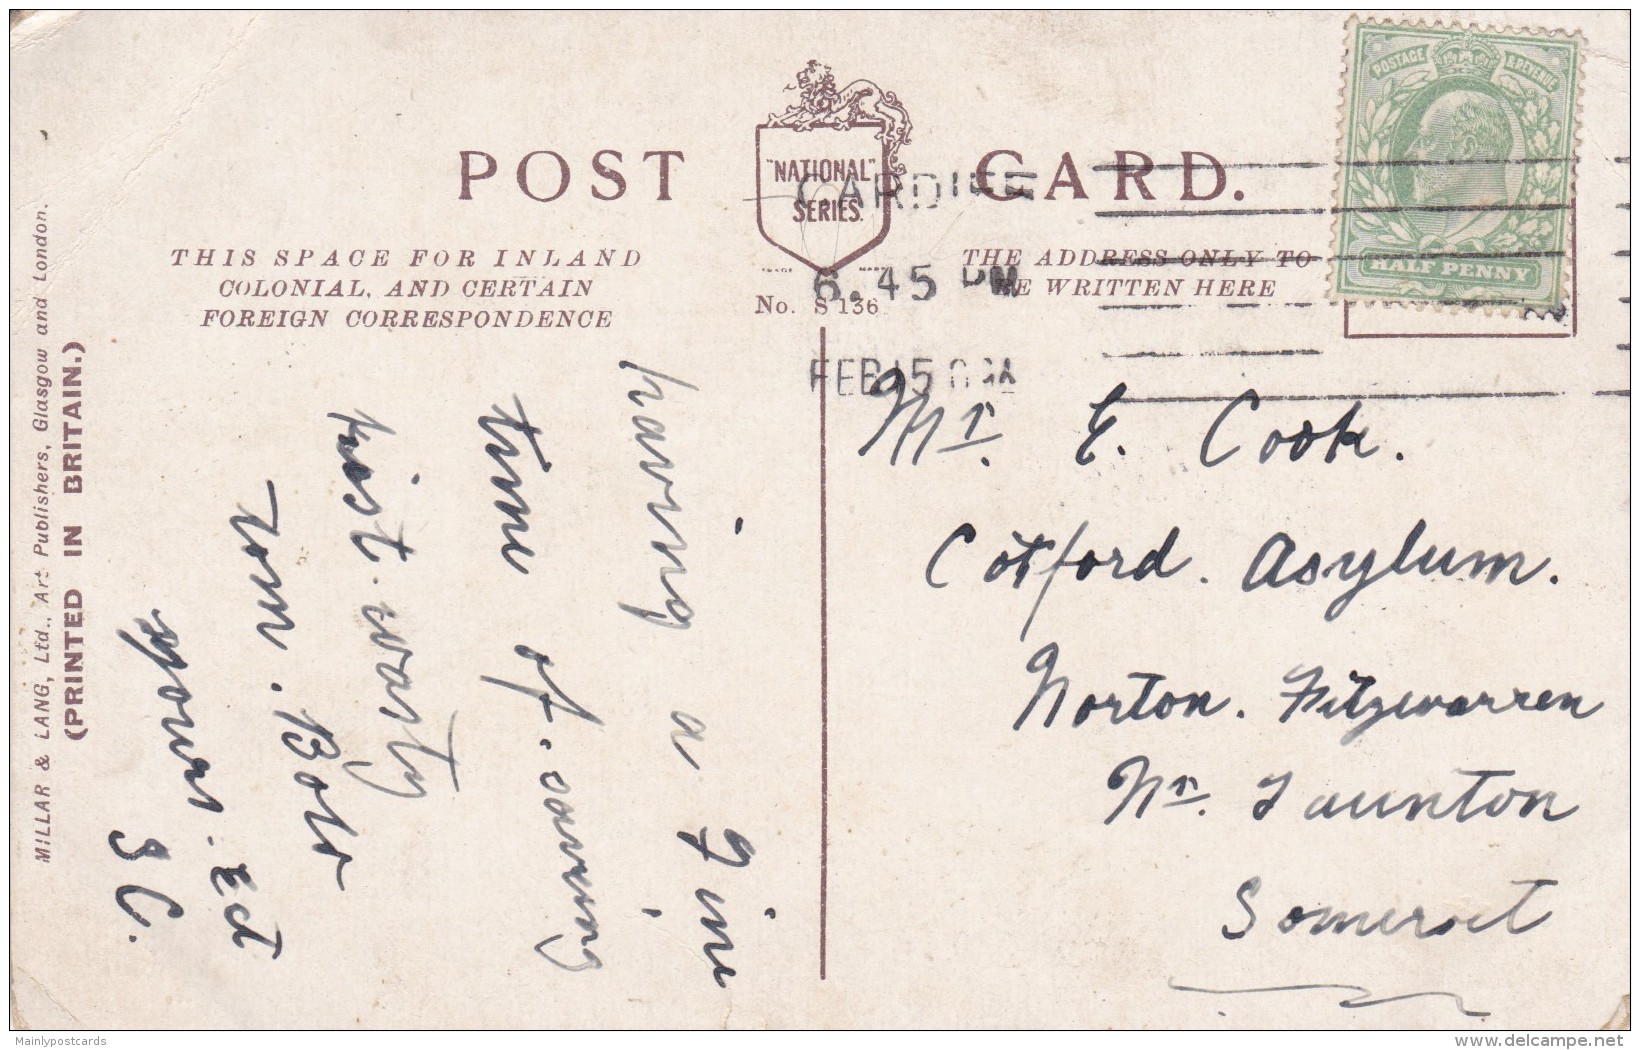 POST CARD.
"NATIONAL"
SERIES.
TRADE MARK
No. S 136
THIS SPACE FOR INLAND
COLONIAL, AND CERTAIN
FOREIGN CORRESPONDENCE
THE ADDRESS ONLY TO
BE WRITTEN HERE
POSTAGE & REVENUE
HALF PENNY
CARDIFF
6.45 PM
FEB 15
MILLAR & LANG, Ltd., Art Publishers, Glasgow and London.
(PRINTED IN BRITAIN.)
having a fine
time of.
Yours. Ect
J C.
Mr. E. Cook.
Cotford. Asylum.
Norton. Fitzwarren
Nr. Taunton
Somerset
Mainlypostcards
www.delcampe.net